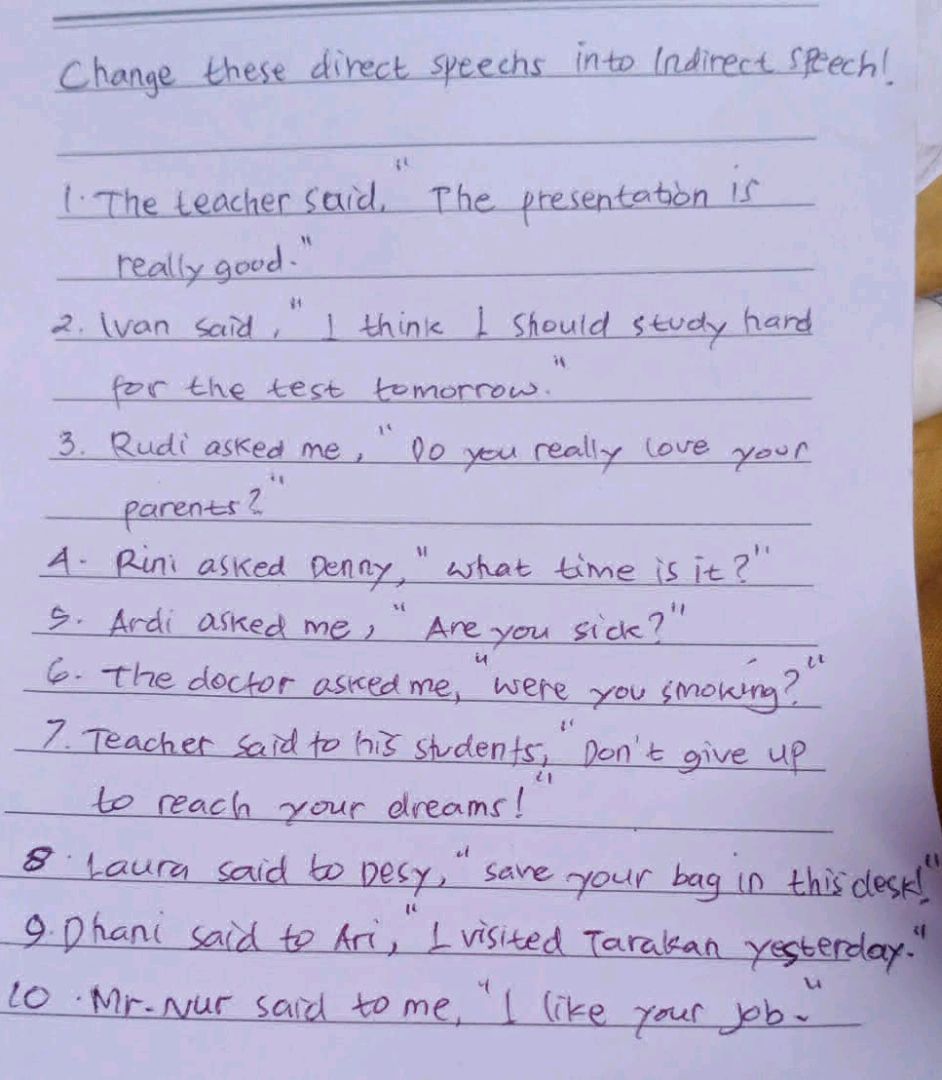 Change these direct speechs into Indirect speech!
1. The teacher said, "The presentation is
really good."
2. Ivan said, "I think I should study hard
for the test tomorrow."
3. Rudi asked me, "Do you really love your
parents?"
4. Rini asked Denny, "what time is it?"
5. Ardi asked me, "Are you sick?"
6. The doctor asked me, "were you smoking?"
7. Teacher said to his students, "Don't give up
to reach your dreams!"
8. Laura said to Desy, "save your bag in this desk!"
9. Dhani said to Ari, "I visited Tarakan yesterday."
10. Mr. Nur said to me, "I like your job."